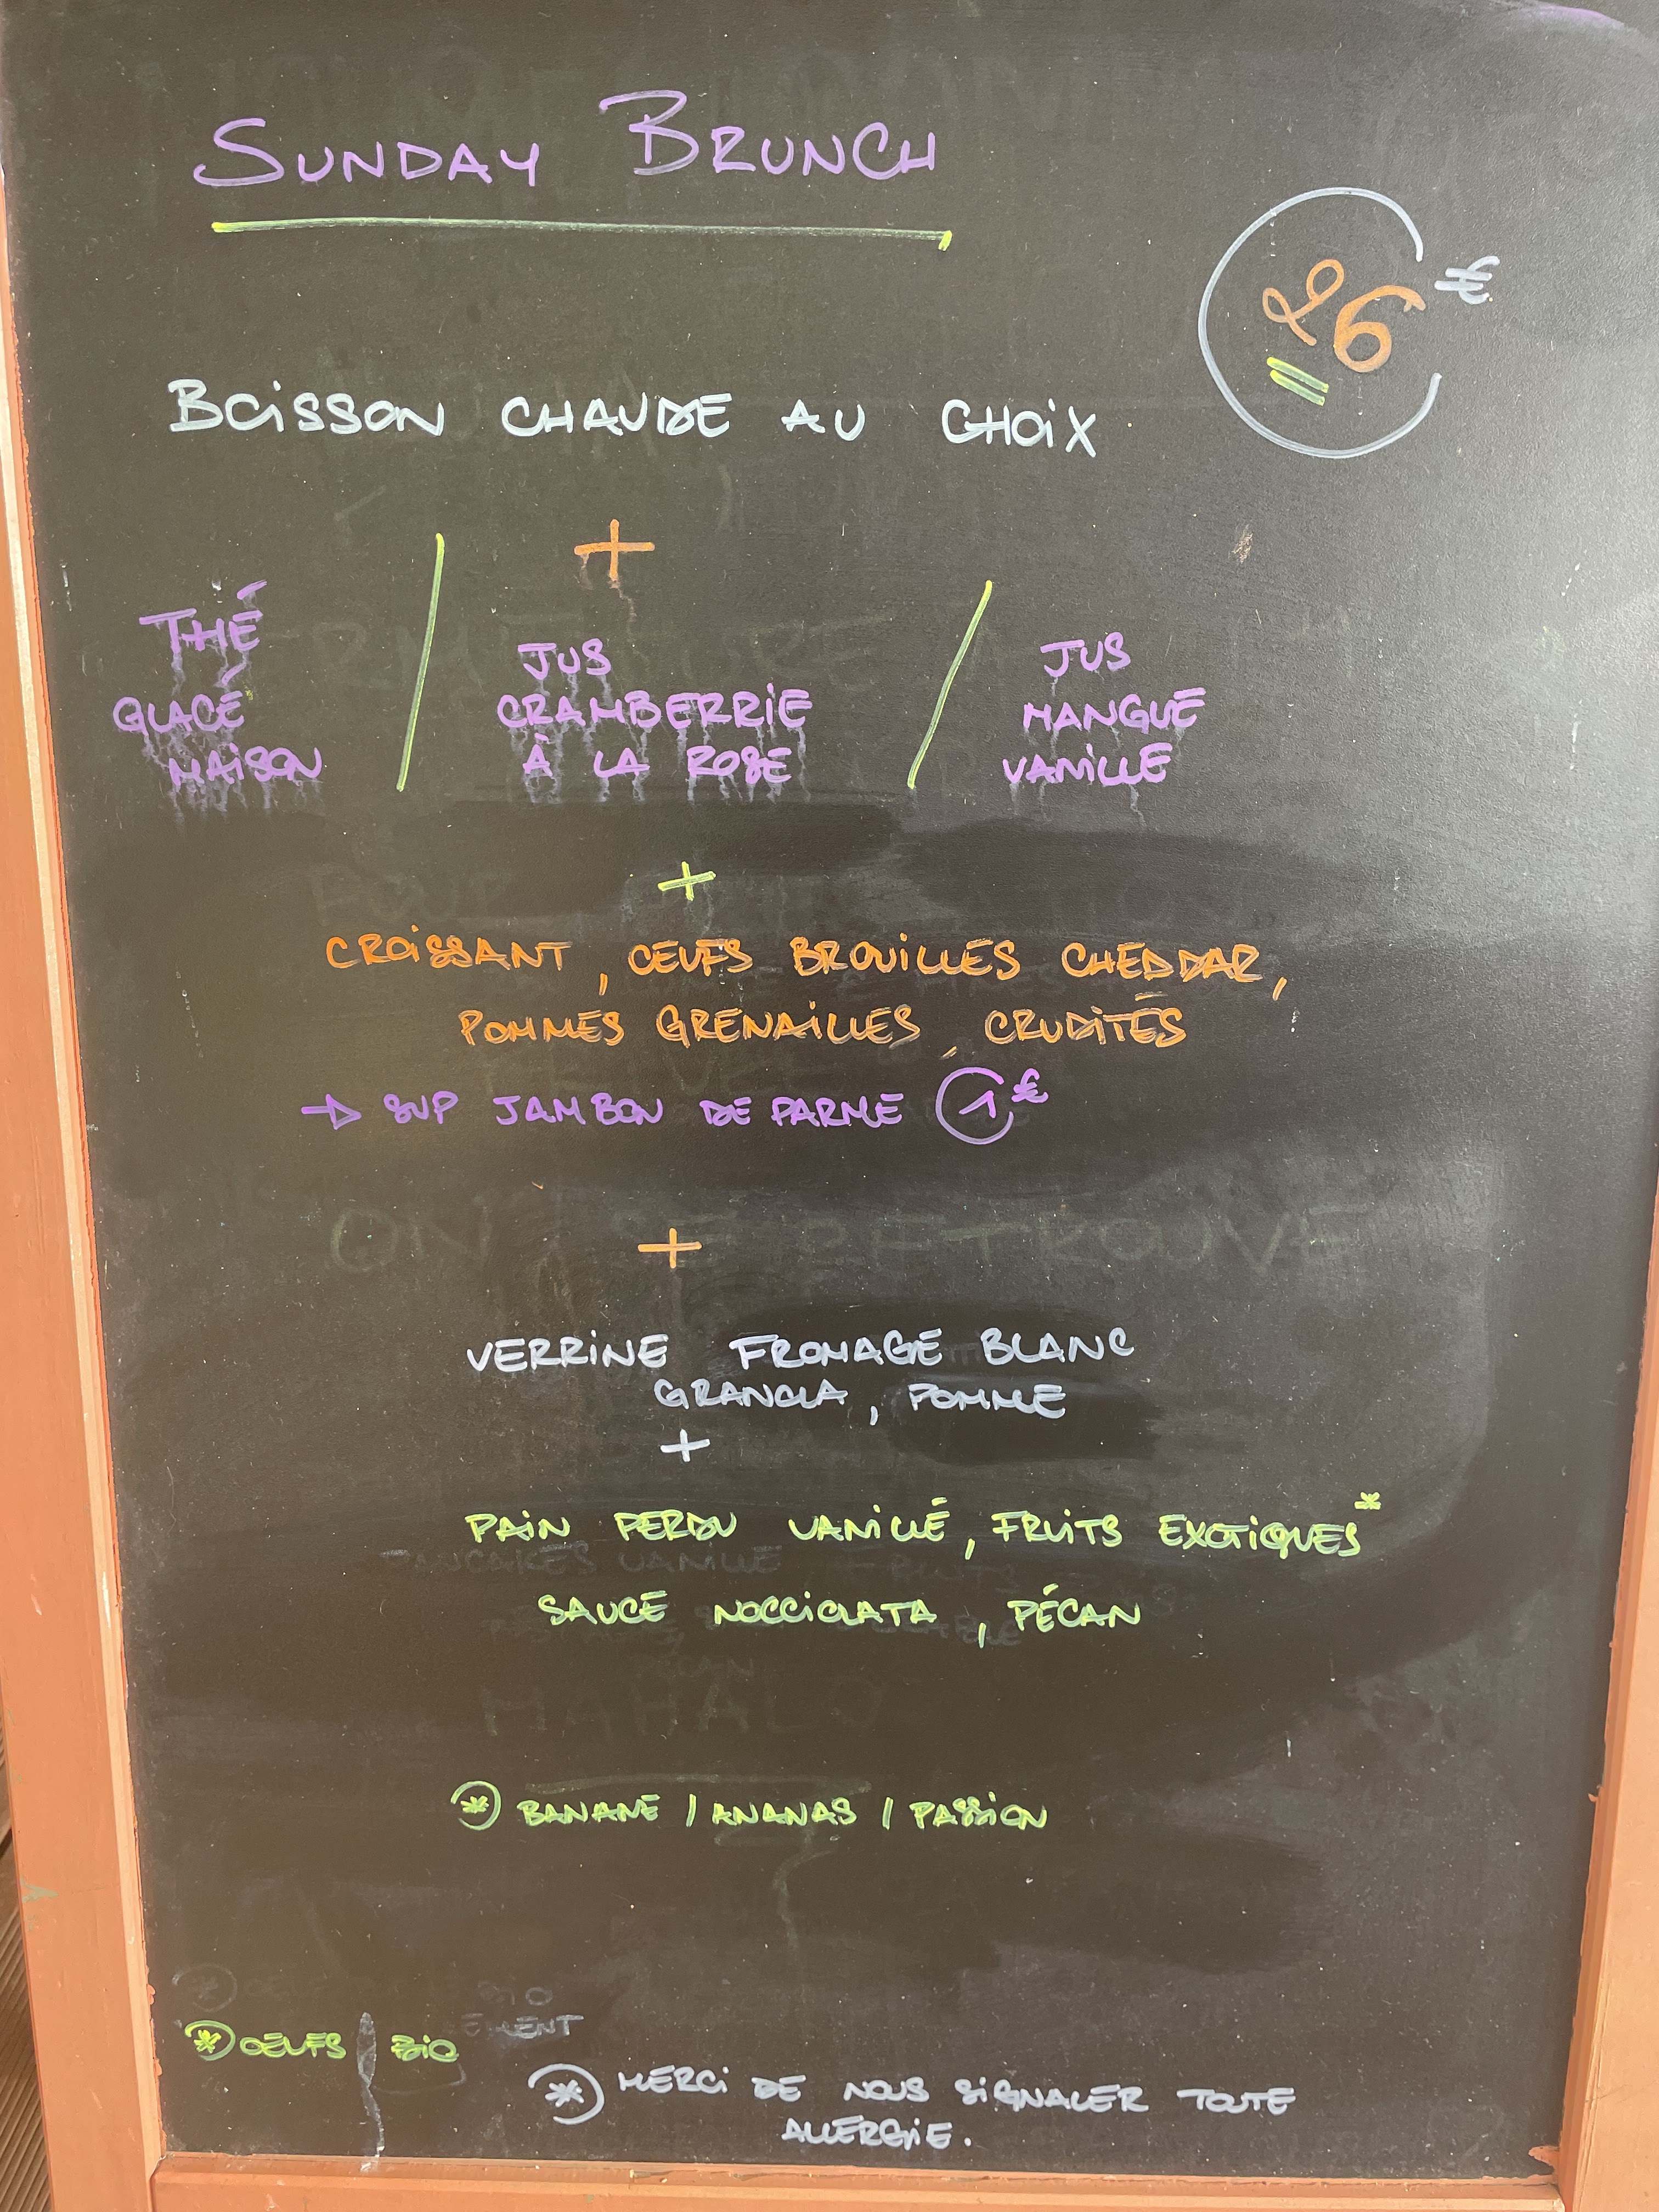 SUNDAY BRUNCH
26 €
BOISSON CHAUDE AU CHOIX
+
THÉ
GLACÉ
MAISON
/
JUS
CRAMBERRIE
À LA ROSE
/
JUS
MANGUE
VANILLE
+
CROISSANT, OEUFS BROUILLES CHEDDAR,
POMMES GRENAILLES, CRUDITÉS
→ SUP JAMBON DE PARME 1€
+
VERRINE FROMAGE BLANC
GRANOLA, POMME
+
PAIN PERDU VANILLÉ, FRUITS EXOTIQUES*
SAUCE NOCCIOLATA, PÉCAN
* BANANE / ANANAS / PASSION
* OEUFS BIO
* MERCI DE NOUS SIGNALER TOUTE
ALLERGIE.
ON SE RETROUVE
PANCAKES VANILLE
MAHALO